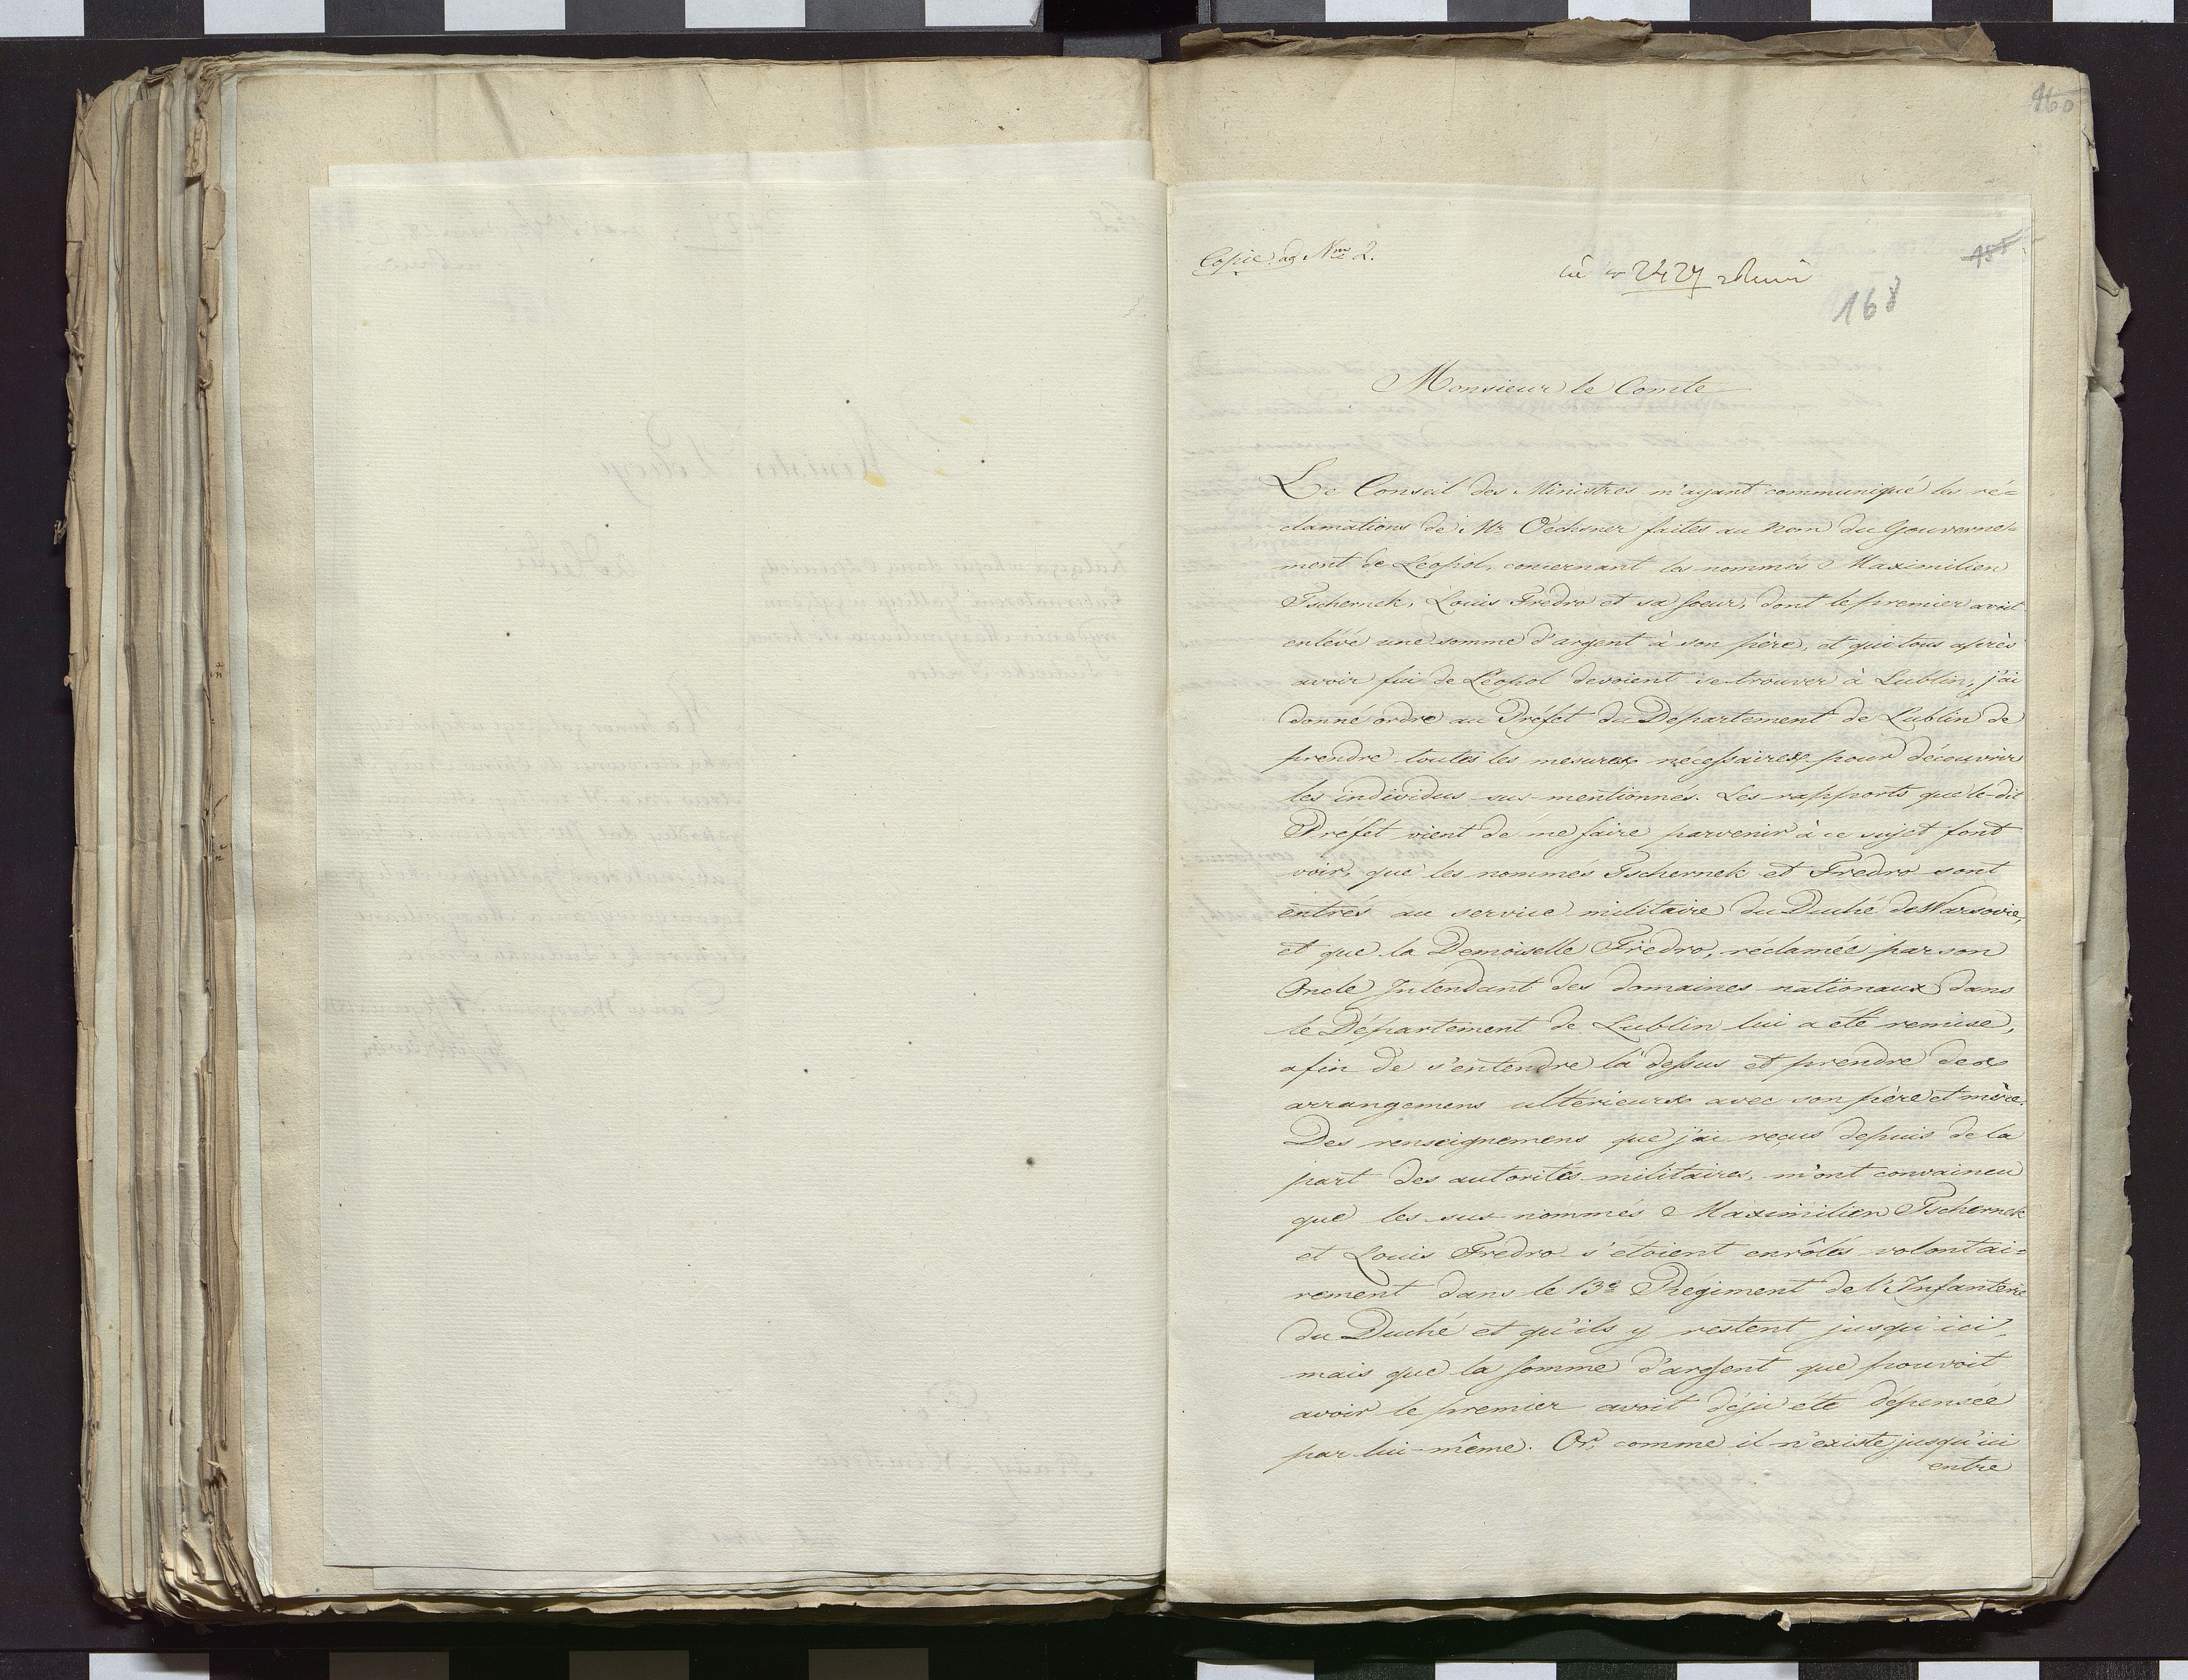 160
Copie ad Nrm 2.
2427
185
168
Monsieur le Comte
Le Conseil des Ministres m'ayant communiqué les ré=
clamations de Mr Oechsner faites au nom du Gouverne=
ment de Léopol, concernant les nommés Maximilien
Tschernek, Louis Fredro et sa soeur, dont le premier avoit
enlevé une somme d'argent à son père, et qui tous après
avoir fui de Léopol devoient se trouver à Lublin, j'ai
donné ordre au Préfet du Département de Lublin de
prendre toutes les mesures nécessaires pour découvrir
les individus sus-mentionnés. Les rapports que le-dit
Préfet vient de me faire parvenir à ce sujet font
voir, que les nommés Tschernek et Fredro sont
entrés au service militaire du Duché de Varsovie,
et que la Demoiselle Fredro, réclamée par son
Oncle Intendant des domaines nationaux dans
le Département de Lublin lui a été remise,
afin de s'entendre là dessus et prendre des
arrangemens ultérieurs avec son père et mère.
Des renseignemens que j'ai reçus depuis de la
part des autorités militaires, m'ont convaincu
que les sus nommés Maximilien Tschernek
et Louis Fredro s'étoient enrôlés volontai=
rement dans le 13e Régiment de l'Infanterie
du Duché et qu'ils y restent jusqu'ici,
mais que la somme d'argent que pouvoit
avoir le premier avoit déja été dépensée
par lui-même. Or, comme il n'existe jusqu'ici
entre